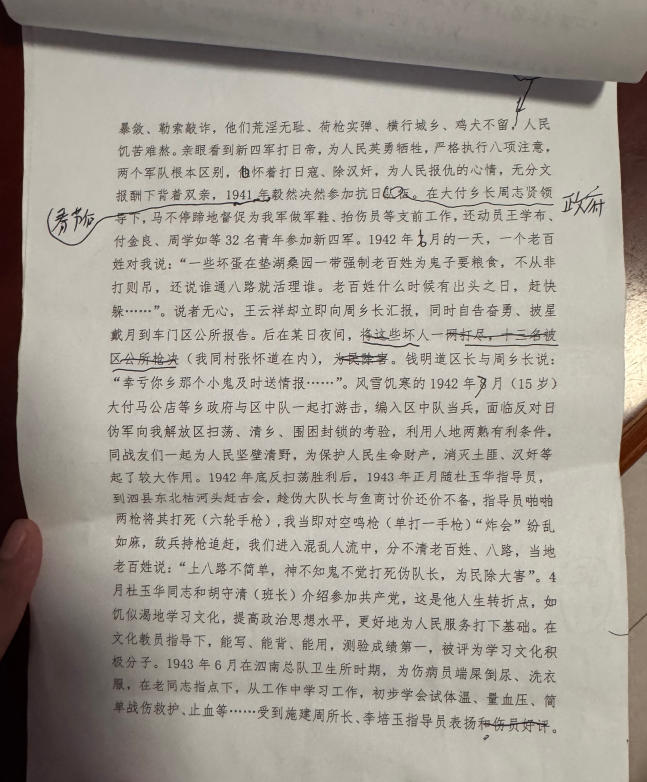 暴敛、勒索敲诈，他们荒淫无耻、荷枪实弹、横行城乡、鸡犬不留，人民
饥苦难熬。亲眼看到新四军打日帝，为人民英勇牺牲，严格执行八项注意，
两个军队根本区别，他怀着打日寇、除汉奸，为人民报仇的心情，无分文
报酬下背着双亲，1941年毅然决然参加抗日。在大付乡长周志贤领
春节后
政府
导下，马不停蹄地督促为我军做军鞋、抬伤员等支前工作，还动员王学布、
付金良、周学如等32名青年参加新四军。1942年6月的一天，一个老百
姓对我说：“一些坏蛋在垫湖桑园一带强制老百姓为鬼子要粮食，不从非
打则吊，还说谁通八路就活理谁。老百姓什么时候有出头之日，赶快
躲……”。说者无心，王云祥却立即向周乡长汇报，同时自告奋勇、披星
戴月到车门区公所报告。后在某日夜间，将这些坏人一网打尽，十三名被
区公所枪决（我同村张怀道在内），为民除害。钱明道区长与周乡长说：
“幸亏你乡那个小鬼及时送情报……”。风雪饥寒的1942年8月（15岁）
大付马公店等乡政府与区中队一起打游击，编入区中队当兵，面临反对日
伪军向我解放区扫荡、清乡、围困封锁的考验，利用人地两熟有利条件，
同战友们一起为人民坚壁清野，为保护人民生命财产，消灭土匪、汉奸等
起了较大作用。1942年底反扫荡胜利后，1943年正月随杜玉华指导员，
到泗县东北枯河头赶古会，趁伪大队长与鱼商讨价还价不备，指导员啪啪
两枪将其打死（六轮手枪），我当即对空鸣枪（单打一手枪）“炸会”纷乱
如麻，敌兵持枪追赶，我们进入混乱人流中，分不清老百姓、八路，当地
老百姓说：“上八路不简单，神不知鬼不觉打死伪队长，为民除大害”。4
月杜玉华同志和胡守清（班长）介绍参加共产党，这是他人生转折点，如
饥似渴地学习文化，提高政治思想水平，更好地为人民服务打下基础。在
文化教员指导下，能写、能背、能用，测验成绩第一，被评为学习文化积
极分子。1943年6月在泗南总队卫生所时期，为伤病员端屎倒尿、洗衣
服，在老同志指点下，从工作中学习工作，初步学会试体温、量血压、简
单战伤救护、止血等……受到施建周所长、李培玉指导员表扬和伤员好评。